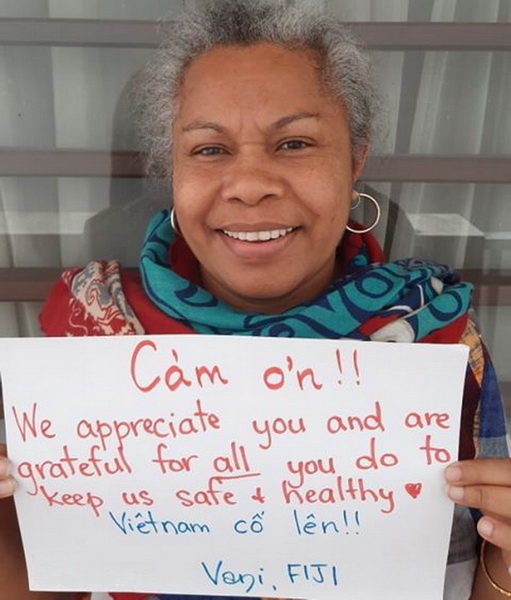 Cảm ơn!!
We appreciate you and are
grateful for all you do to
keep us safe & healthy ♥
Việtnam cố lên!!
Vani, FIJI